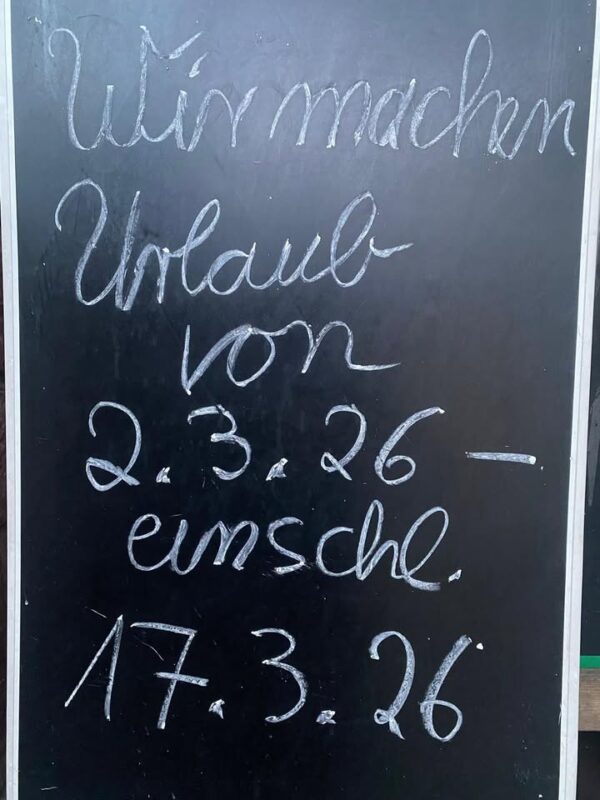 Wir machen
Urlaub
von
2.3.26 –
einschl.
17.3.26